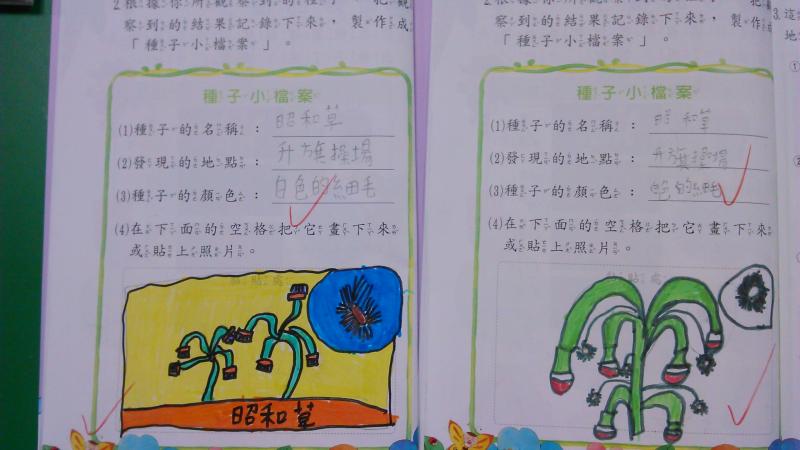 2.根據你所觀察到的種子,把觀
察到的結果記錄下來,製作成
「種子小檔案」。
種子小檔案
(1)種子的名稱:昭和草
(2)發現的地點:升旗操場
(3)種子的顏色:白色的細毛
(4)在下面的空格把它畫下來
或貼上照片。
黏貼處
昭和草
把
察到的結果記錄下來,製作成
「種子小檔案」。
種子小檔案
(1)種子的名稱:昭和草
(2)發現的地點:升旗操場
(3)種子的顏色:白色的細毛
(4)在下面的空格把它畫下來
或貼上照片。
黏貼處
3.這
地
①